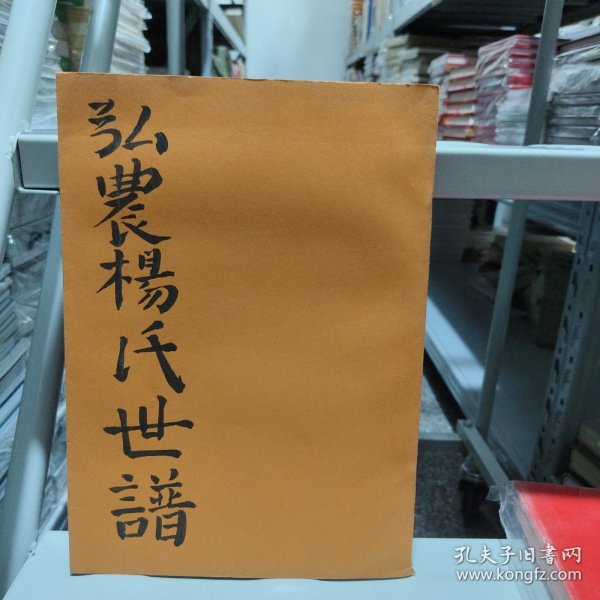 弘農楊氏世譜
孔夫子旧書网
www.kongfz.com